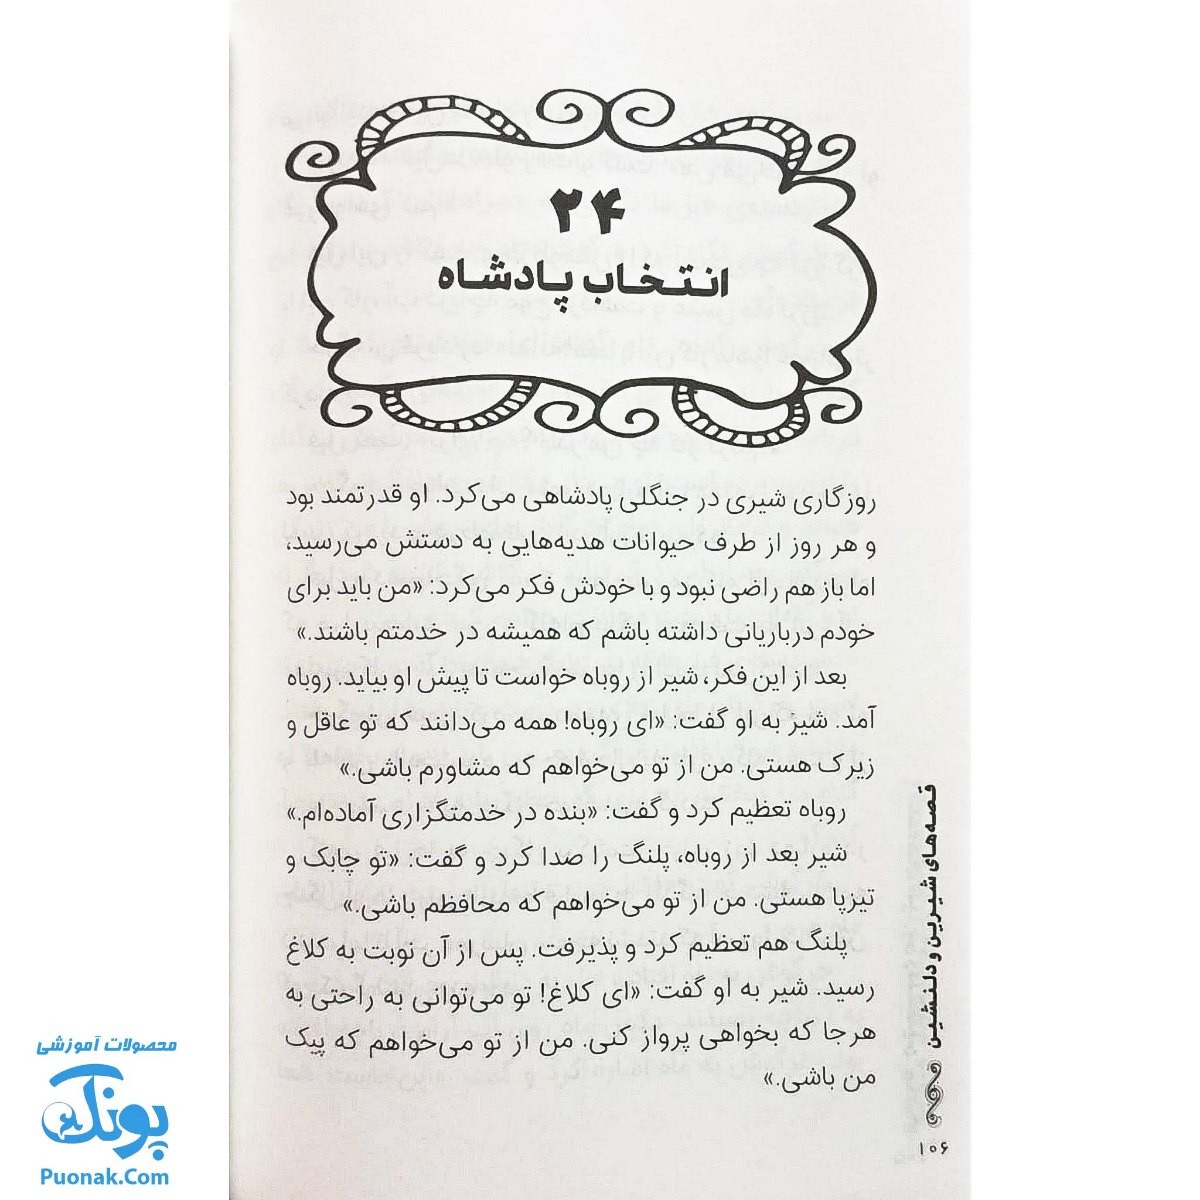 ۲۴
انتخاب پادشاه
روزگاری شیری در جنگلی پادشاهی می‌کرد. او قدرتمند بود
و هر روز از طرف حیوانات هدیه‌هایی به دستش می‌رسید،
اما باز هم راضی نبود و با خودش فکر می‌کرد: «من باید برای
خودم درباریانی داشته باشم که همیشه در خدمتم باشند.»
بعد از این فکر، شیر از روباه خواست تا پیش او بیاید. روباه
آمد. شیر به او گفت: «ای روباه! همه می‌دانند که تو عاقل و
زیرک هستی. من از تو می‌خواهم که مشاورم باشی.»
روباه تعظیم کرد و گفت: «بنده در خدمتگزاری آماده‌ام.»
شیر بعد از روباه، پلنگ را صدا کرد و گفت: «تو چابک و
تیزپا هستی. من از تو می‌خواهم که محافظم باشی.»
پلنگ هم تعظیم کرد و پذیرفت. پس از آن نوبت به کلاغ
رسید. شیر به او گفت: «ای کلاغ! تو می‌توانی به راحتی به
هرجا که بخواهی پرواز کنی. من از تو می‌خواهم که پیک
من باشی.»
قصه‌های شیرین و دلنشین
۱۰۶
محصولات آموزشی
پونک
Puonak.Com